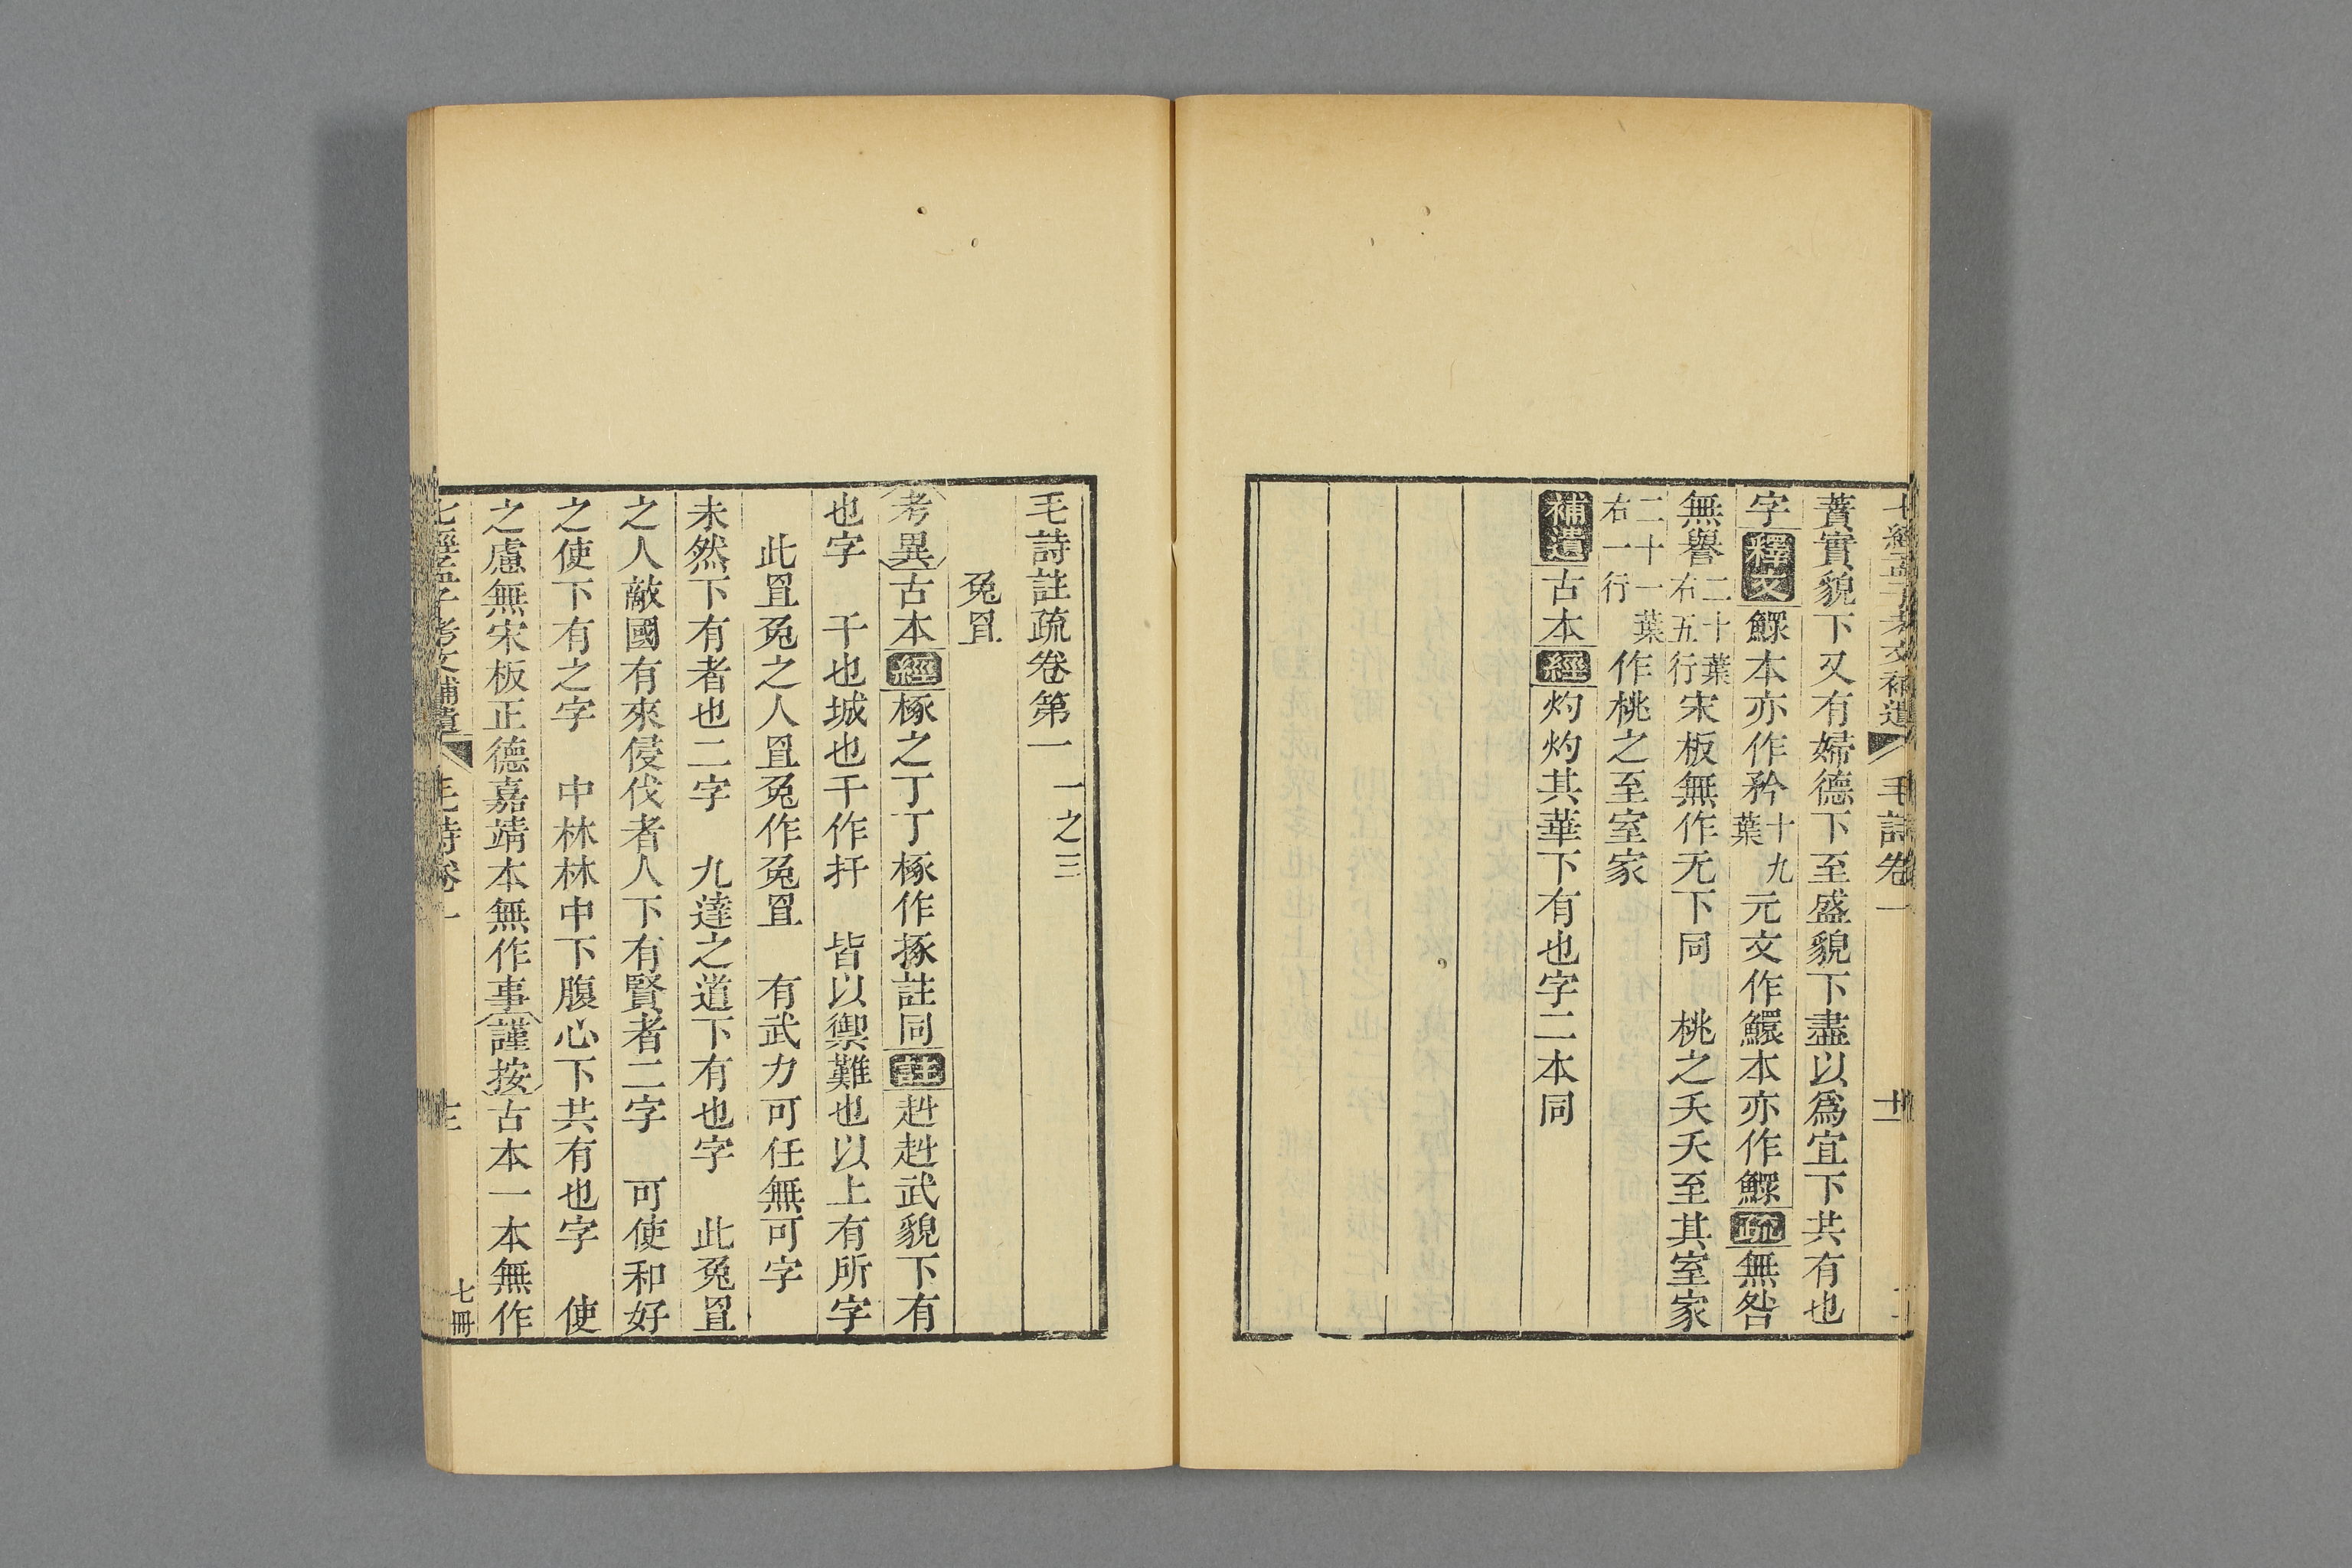 七經孟子考文補遺 毛詩卷一 十一
蕡實貌下又有婦德下至盛貌下盡以爲宜下共有也
字釋文鰥本亦作矜十九葉元文作鰥本亦作鰥疏無咎
無譽二十葉右五行宋板無作无下同 桃之夭夭至其室家
二十一葉右一行作桃之至室家
補遺古本經灼灼其華下有也字二本同
毛詩註疏卷第一 一之三
兔罝
考異古本經椓之丁丁椓作㧻註同註赳赳武貌下有
也字 干也城也干作扞 皆以禦難也以上有所字
此罝兔之人罝兔作兔罝 有武力可任無可字
未然下有者也二字 九達之道下有也字 此兔罝
之人敵國有來侵伐者人下有賢者二字 可使和好
之使下有之字 中林林中下腹心下共有也字 使
之慮無宋板正德嘉靖本無作事謹按古本一本無作
七經孟子考文補遺 毛詩卷一 七冊